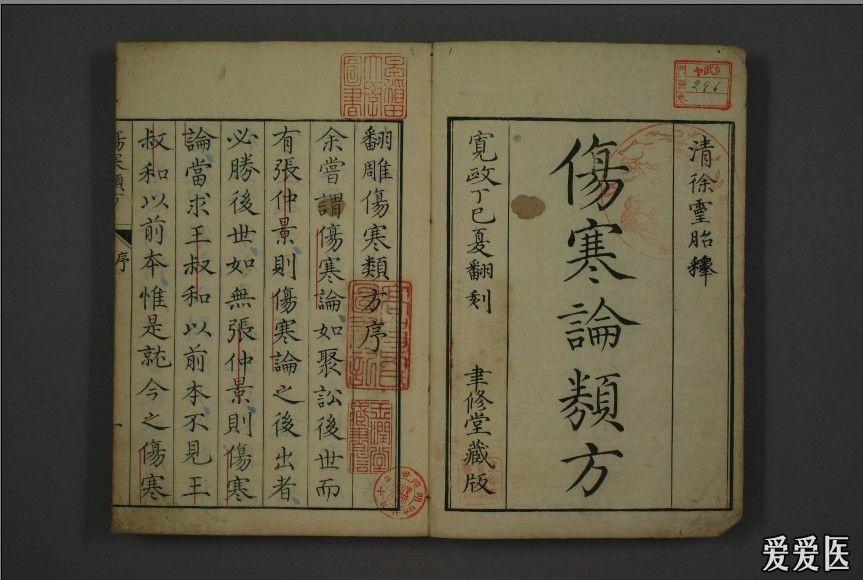 清徐靈胎釋
傷寒論類方
寬政丁巳夏翻刻 聿修堂藏版
翻雕傷寒類方序
余嘗謂傷寒論如聚訟後世而
有張仲景則傷寒論之後出者
必勝後世如無張仲景則傷寒
論當求王叔和以前本不見王
叔和以前本惟是就今之傷寒
傷寒類方
序
一
246
爱爱医